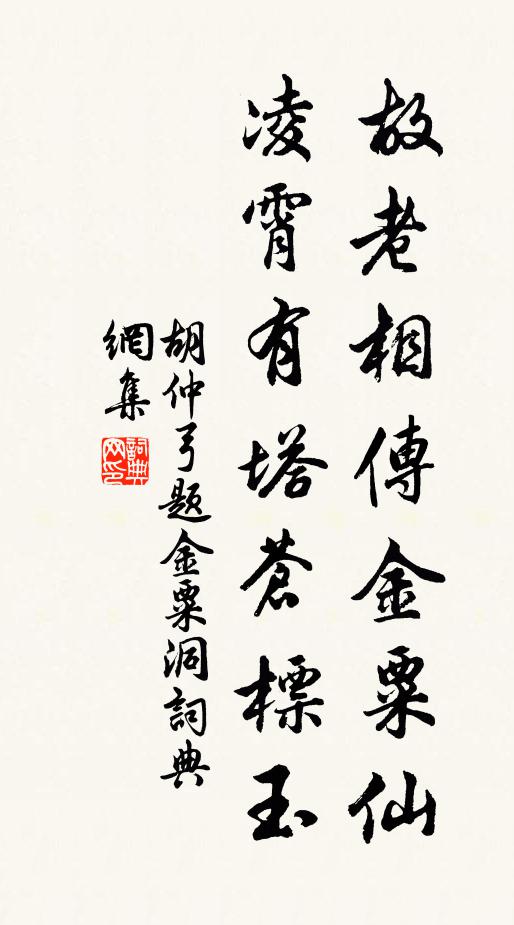 故老相傳金粟仙
凌霄有塔蒼標玉
胡仲弓題金粟洞詞典
網集
詞典网印